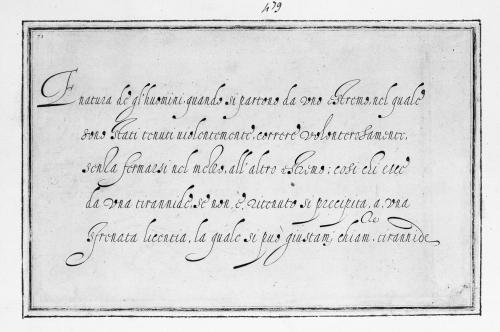 479
E natura de gl'huomini quando si partono da vno estremo, nel quale
sono stati tenuti uiolentemente, correre volonterosamente,
senza fermarsi nel mezzo, all'altro estremo: così chi esce
da vna tirannide, se non, è, ritenuto si precipita, a, vna
sfrenata licentia, la quale si può giustam. chiam. tirannide